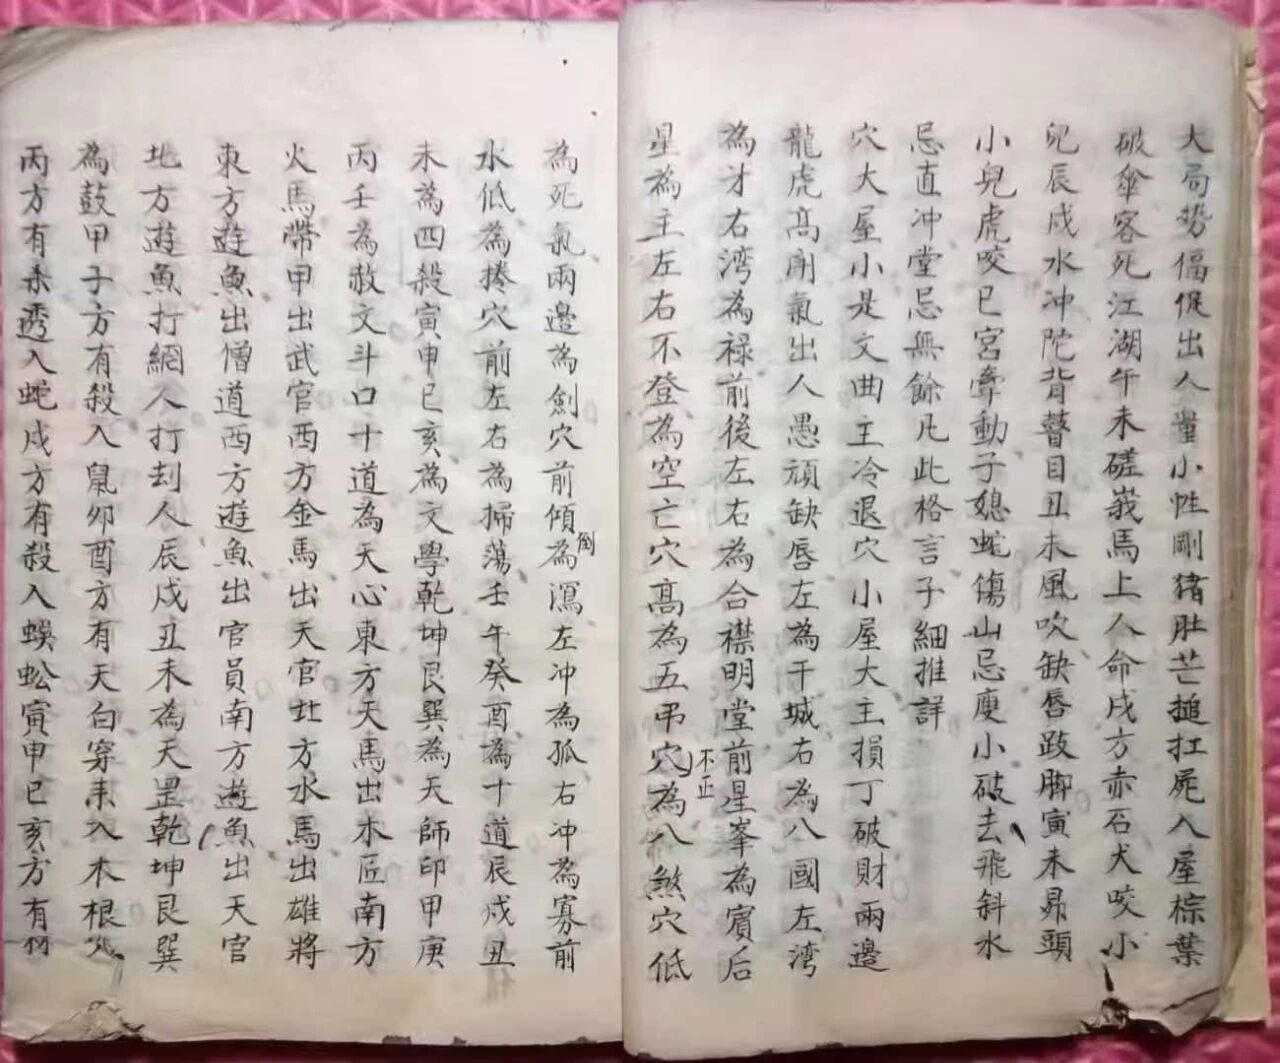 大局势偪促出人量小性剛猪肚芒搥扛屍入屋棕葉
破傘客死江湖午未磋峩馬上人命戌方赤石犬咬小
兒辰戌水冲陀背瞽目丑未風吹缺唇跛脚寅未昴頭
小兒虎咬巳宮牽動子媳蛇傷山忌廋小破去飛斜水
忌直冲堂忌無餘凡此格言子細推詳
穴大屋小是文曲主冷退穴小屋大主損丁破財兩邊
龍虎高剛氣出人愚頑缺唇左為干城右為八國左湾
為才右湾為禄前後左右為合襟明堂前星峯為賓后
星為主左右不登為空亡穴高為五帀穴不正為八煞穴低
為死氣兩邊為劍穴前傾倒為瀉左冲為孤右冲為寡前
水低為捲穴前左右為掃蕩壬午癸酉為十道辰戍丑
未為四殺寅申巳亥為文學乾坤艮巽為天師印甲庚
丙壬為赦文斗口十道為天心東方天馬出木匠南方
火馬帶甲出武官西方金馬出天官北方水馬出雄將
東方遊魚出僧道西方遊魚出官員南方遊魚出天官
北方遊魚打網人打刦人辰戍丑未為天罡乾坤艮巽
為鼓甲子方有殺入鼠卯酉方有天白穿來入木根
丙方有杀透入蛇戍方有殺入蜈蚣寅甲巳亥方有